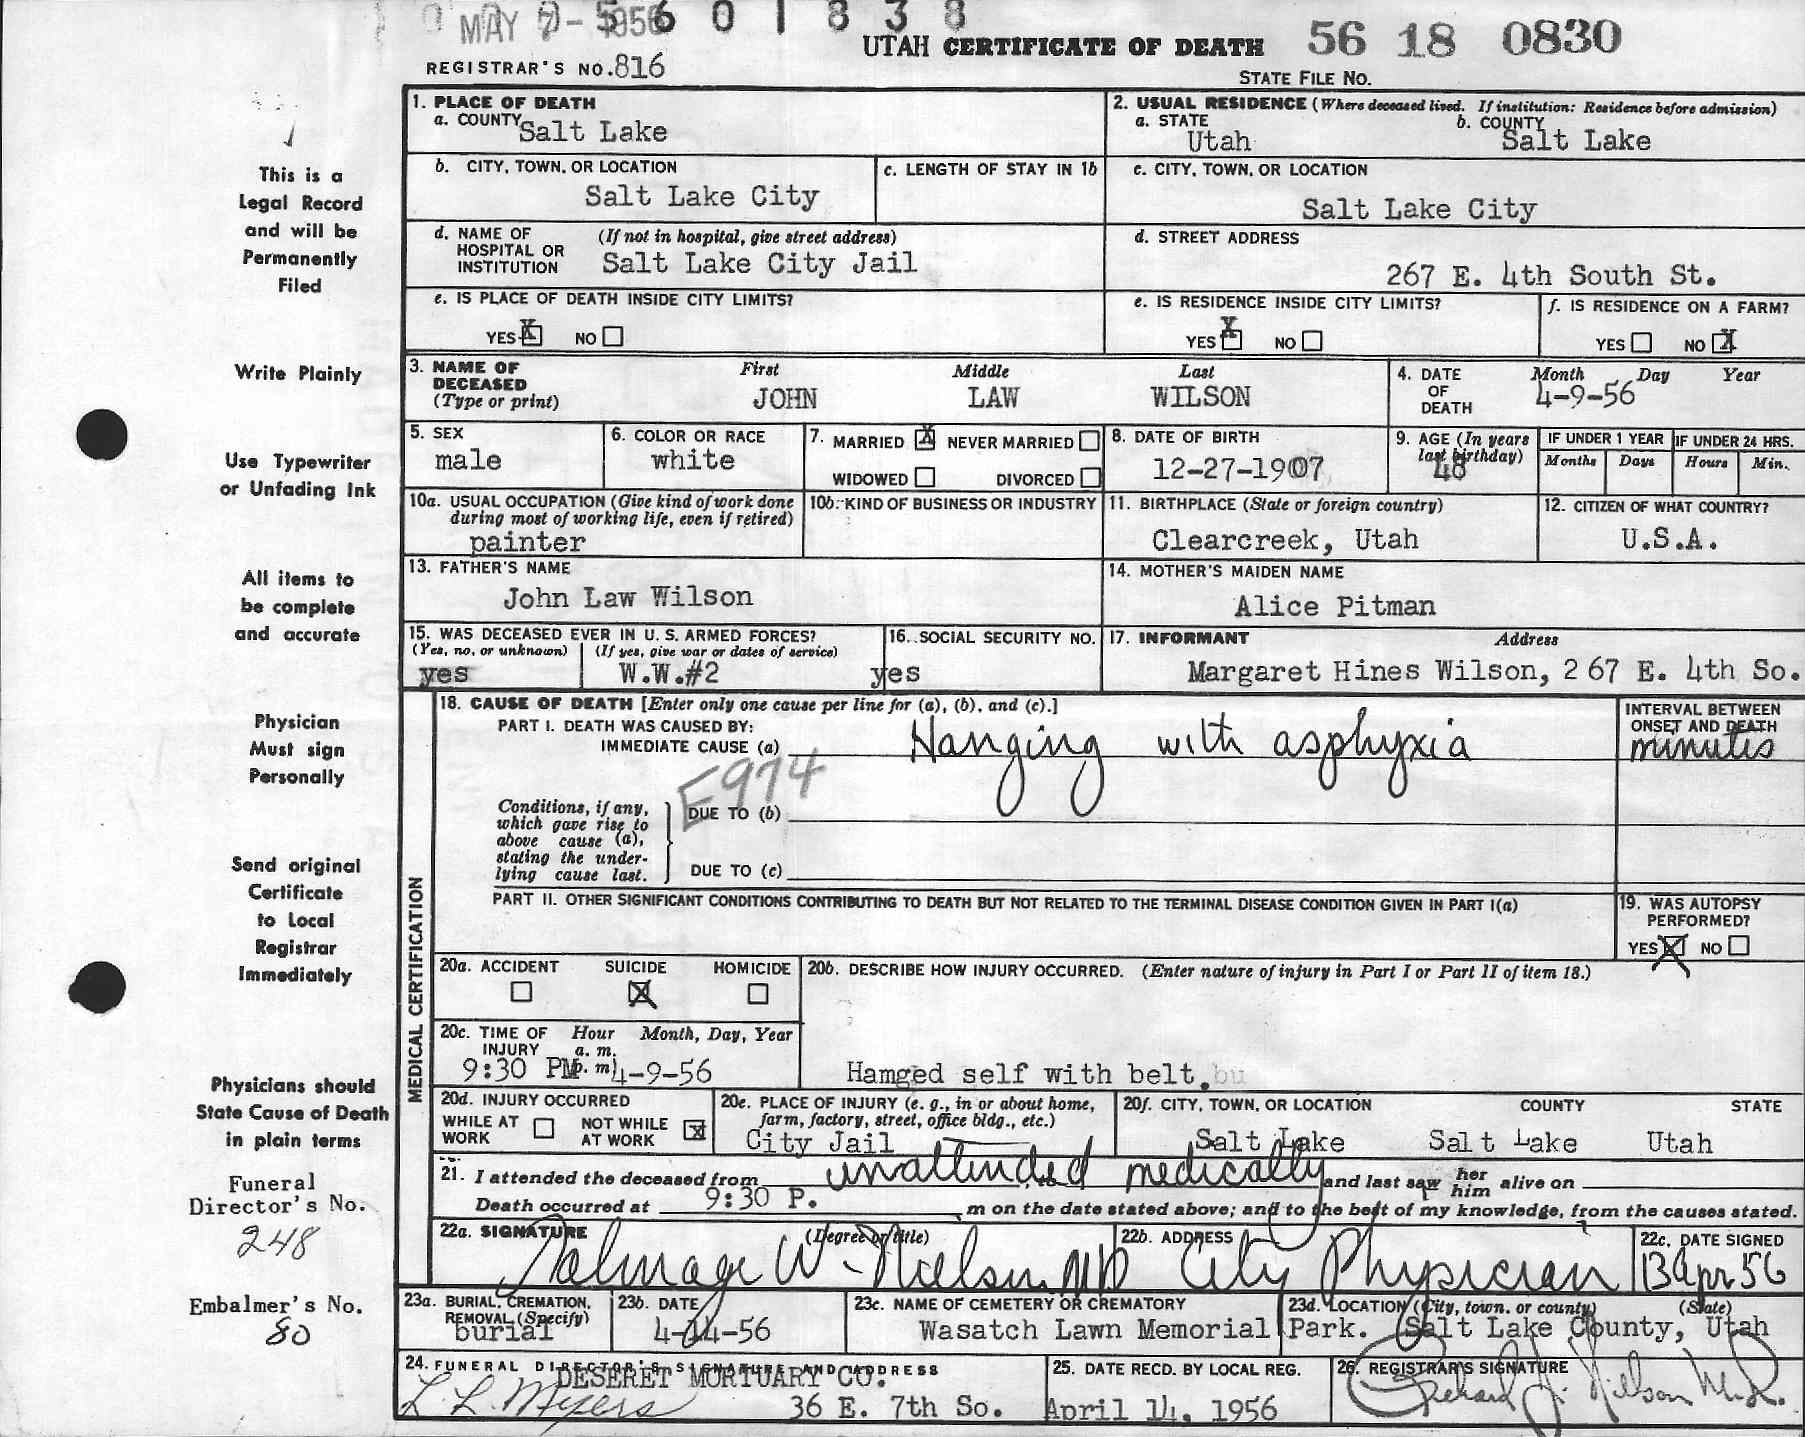 MAY 7 - 1956
5 6 0 1 8 3 8
UTAH CERTIFICATE OF DEATH 56 18 0830
REGISTRAR'S NO. 816
STATE FILE NO.
1. PLACE OF DEATH
a. COUNTY
Salt Lake
2. USUAL RESIDENCE (Where deceased lived. If institution: Residence before admission)
a. STATE b. COUNTY
Utah Salt Lake
b. CITY, TOWN, OR LOCATION
Salt Lake City
c. LENGTH OF STAY IN 1b
c. CITY, TOWN, OR LOCATION
Salt Lake City
d. NAME OF HOSPITAL OR INSTITUTION
(If not in hospital, give street address)
Salt Lake City Jail
d. STREET ADDRESS
267 E. 4th South St.
e. IS PLACE OF DEATH INSIDE CITY LIMITS?
YES X NO
e. IS RESIDENCE INSIDE CITY LIMITS?
YES X NO
f. IS RESIDENCE ON A FARM?
YES NO X
3. NAME OF DECEASED (Type or print)
First Middle Last
JOHN LAW WILSON
4. DATE OF DEATH
Month Day Year
4-9-56
5. SEX
male
6. COLOR OR RACE
white
7. MARRIED X NEVER MARRIED
WIDOWED DIVORCED
8. DATE OF BIRTH
12-27-1907
9. AGE (In years last birthday)
48
IF UNDER 1 YEAR
Months Days
IF UNDER 24 HRS.
Hours Min.
10a. USUAL OCCUPATION (Give kind of work done
during most of working life, even if retired)
painter
10b. KIND OF BUSINESS OR INDUSTRY
11. BIRTHPLACE (State or foreign country)
Clearcreek, Utah
12. CITIZEN OF WHAT COUNTRY?
U.S.A.
13. FATHER'S NAME
John Law Wilson
14. MOTHER'S MAIDEN NAME
Alice Pitman
15. WAS DECEASED EVER IN U. S. ARMED FORCES?
(Yes, no, or unknown) (If yes, give war or dates of service)
yes W.W.#2
16. SOCIAL SECURITY NO.
yes
17. INFORMANT Address
Margaret Hines Wilson, 2 67 E. 4th So.
MEDICAL CERTIFICATION
18. CAUSE OF DEATH [Enter only one cause per line for (a), (b), and (c).]
PART I. DEATH WAS CAUSED BY:
IMMEDIATE CAUSE (a) Hanging with asphyxia
INTERVAL BETWEEN
ONSET AND DEATH
minutes
E974
Conditions, if any,
which gave rise to
above cause (a),
stating the under-
lying cause last.
DUE TO (b)
DUE TO (c)
PART II. OTHER SIGNIFICANT CONDITIONS CONTRIBUTING TO DEATH BUT NOT RELATED TO THE TERMINAL DISEASE CONDITION GIVEN IN PART I(a)
19. WAS AUTOPSY PERFORMED?
YES X NO
20a. ACCIDENT SUICIDE HOMICIDE
X
20b. DESCRIBE HOW INJURY OCCURRED. (Enter nature of injury in Part I or Part II of item 18.)
Hamged self with belt. bu
20c. TIME OF INJURY
Hour Month, Day, Year
a. m.
p. m.
9:30 PM 4-9-56
20d. INJURY OCCURRED
WHILE AT WORK NOT WHILE AT WORK X
20e. PLACE OF INJURY (e. g., in or about home,
farm, factory, street, office bldg., etc.)
City Jail
20f. CITY, TOWN, OR LOCATION COUNTY STATE
Salt Lake Salt Lake Utah
21. I attended the deceased from unattended medically and last saw her him alive on
Death occurred at 9:30 P. m on the date stated above; and to the best of my knowledge, from the causes stated.
22a. SIGNATURE (Degree or title)
Talmage W. Nielsen MD
22b. ADDRESS
City Physician
22c. DATE SIGNED
13 Apr 56
23a. BURIAL, CREMATION,
REMOVAL (Specify)
burial
23b. DATE
4-14-56
23c. NAME OF CEMETERY OR CREMATORY
Wasatch Lawn Memorial Park.
23d. LOCATION (City, town, or county) (State)
Salt Lake County, Utah
24. FUNERAL DIRECTOR'S SIGNATURE AND ADDRESS
DESERET MORTUARY CO.
L. L. Myers 36 E. 7th So.
25. DATE RECD. BY LOCAL REG.
April 14, 1956
26. REGISTRAR'S SIGNATURE
This is a
Legal Record
and will be
Permanently
Filed
Write Plainly
Use Typewriter
or Unfading Ink
All items to
be complete
and accurate
Physician
Must sign
Personally
Send original
Certificate
to Local
Registrar
Immediately
Physicians should
State Cause of Death
in plain terms
Funeral
Director's No.
248
Embalmer's No.
80